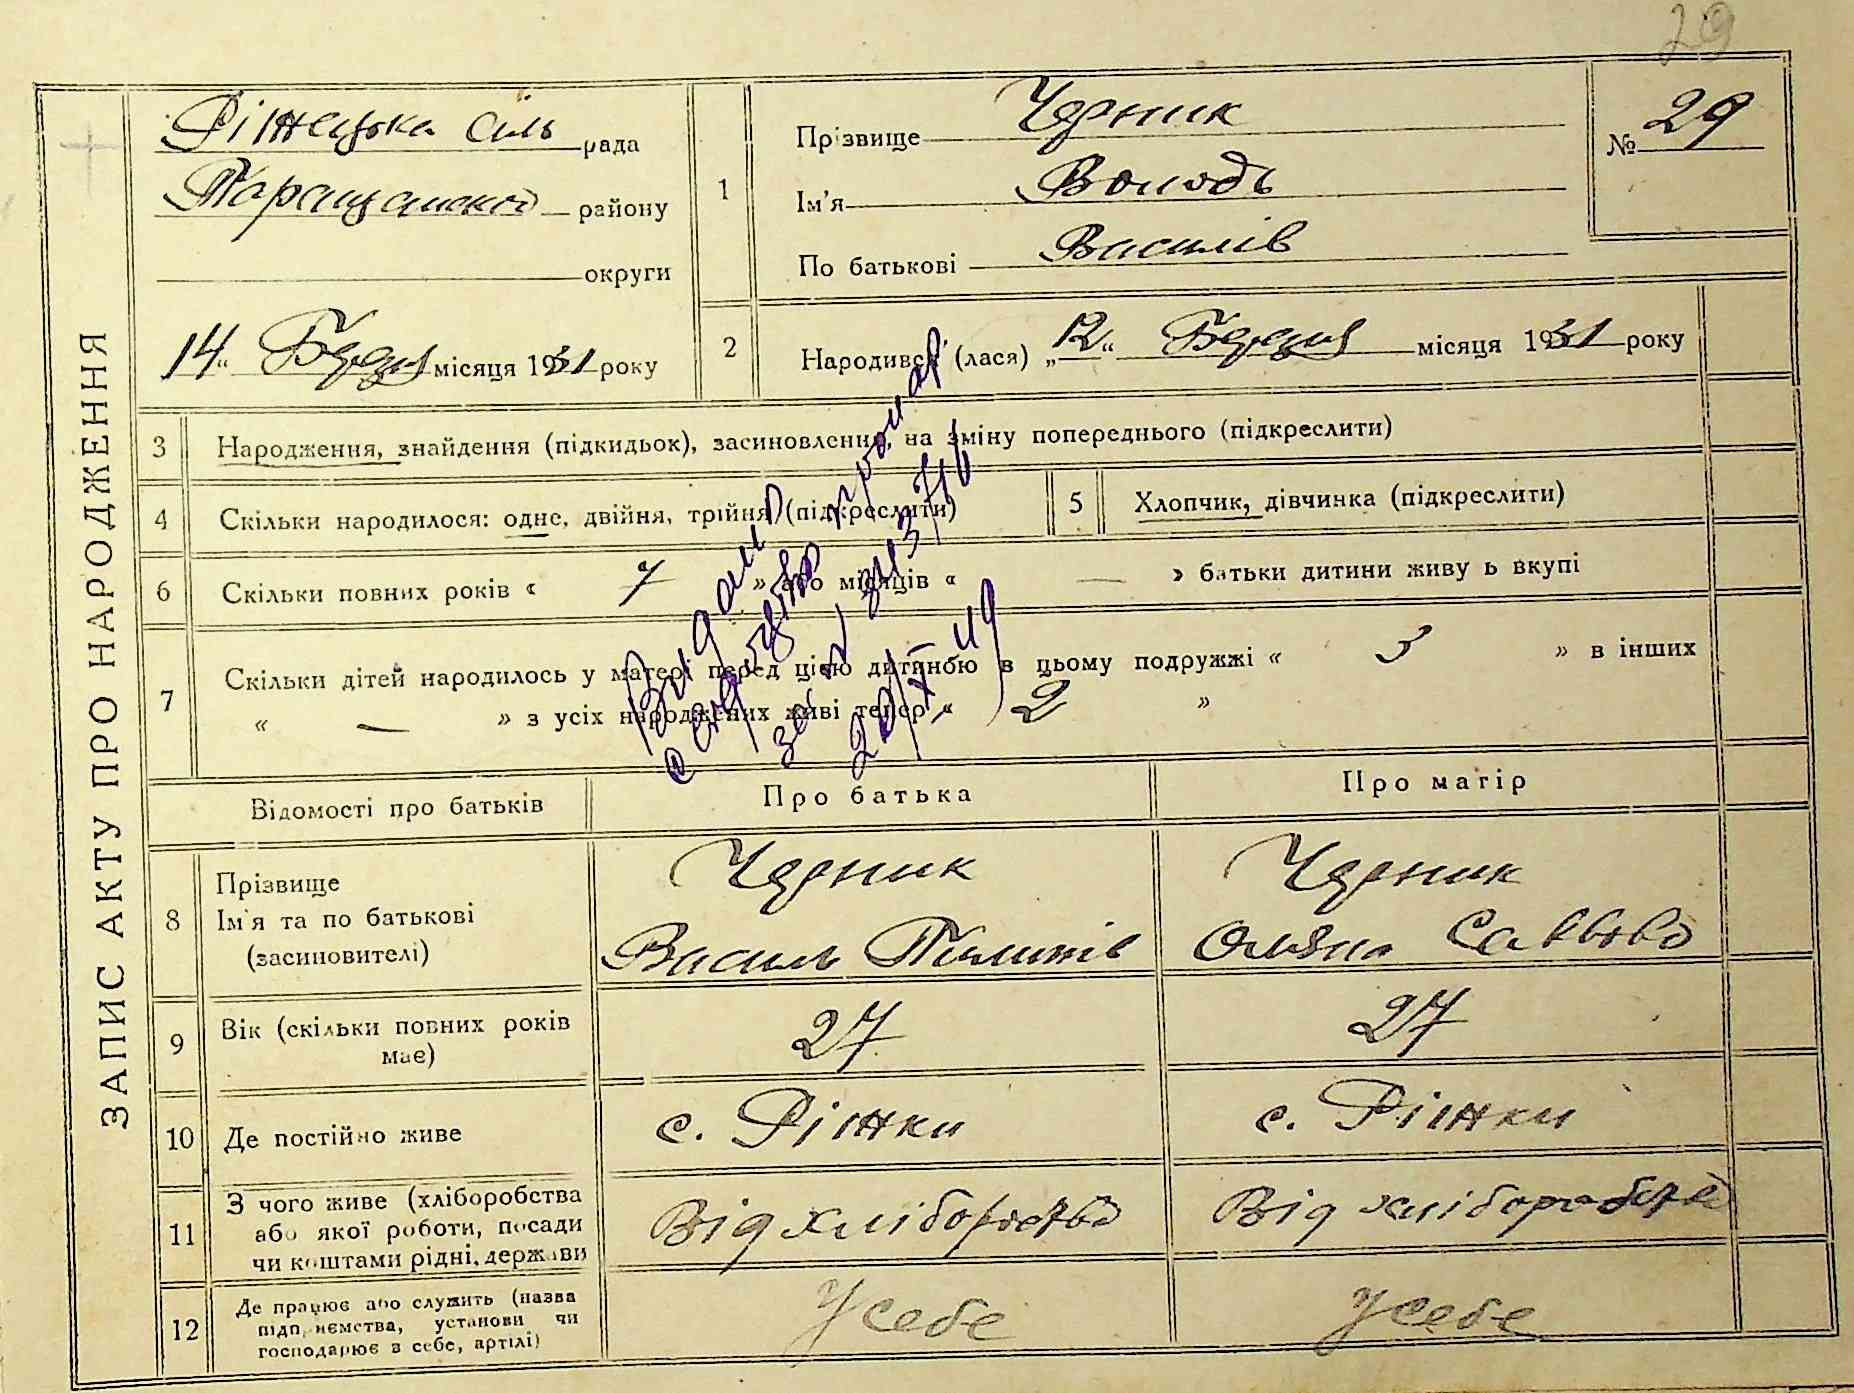 29
ЗАПИС АКТУ ПРО НАРОДЖЕННЯ
Ріжецька сіль рада
Таращанського району
округи
14 " Березня місяця 1931 року
1
Прізвище Черник
Ім'я Володь
По батькові Василів
№ 29
2
Народився (лася) „12“ Березня місяця 1931 року
3 Народження, знайдення (підкидьок), засиновлення, на зміну попереднього (підкреслити)
4 Скільки народилося: одне, двійня, трійня (підкреслити)
5 Хлопчик, дівчинка (підкреслити)
6 Скільки повних років « 7 » або місяців « — » батьки дитини живуть вкупі
7 Скільки дітей народилось у матері перед цією дитиною в цьому подружжі « 3 » в інших
« — » з усіх народжених живі тепер « 2 »
Видані
20/XI 49
Відомості про батьків Про батька Про матір
8 Прізвище
Ім'я та по батькові
(засиновителі)
Черник
Василь
Черник
Саввова
9 Вік (скільки повних років
має)
27
27
10 Де постійно живе
с. Ріжки
с. Ріжки
11 З чого живе (хліборобства
або якої роботи, посади
чи коштами рідні, держави
Від хліборобства
Від хліборобства
12 Де працює або служить (назва
підприємства, установи чи
господарює в себе, артілі)
У себе
У себе